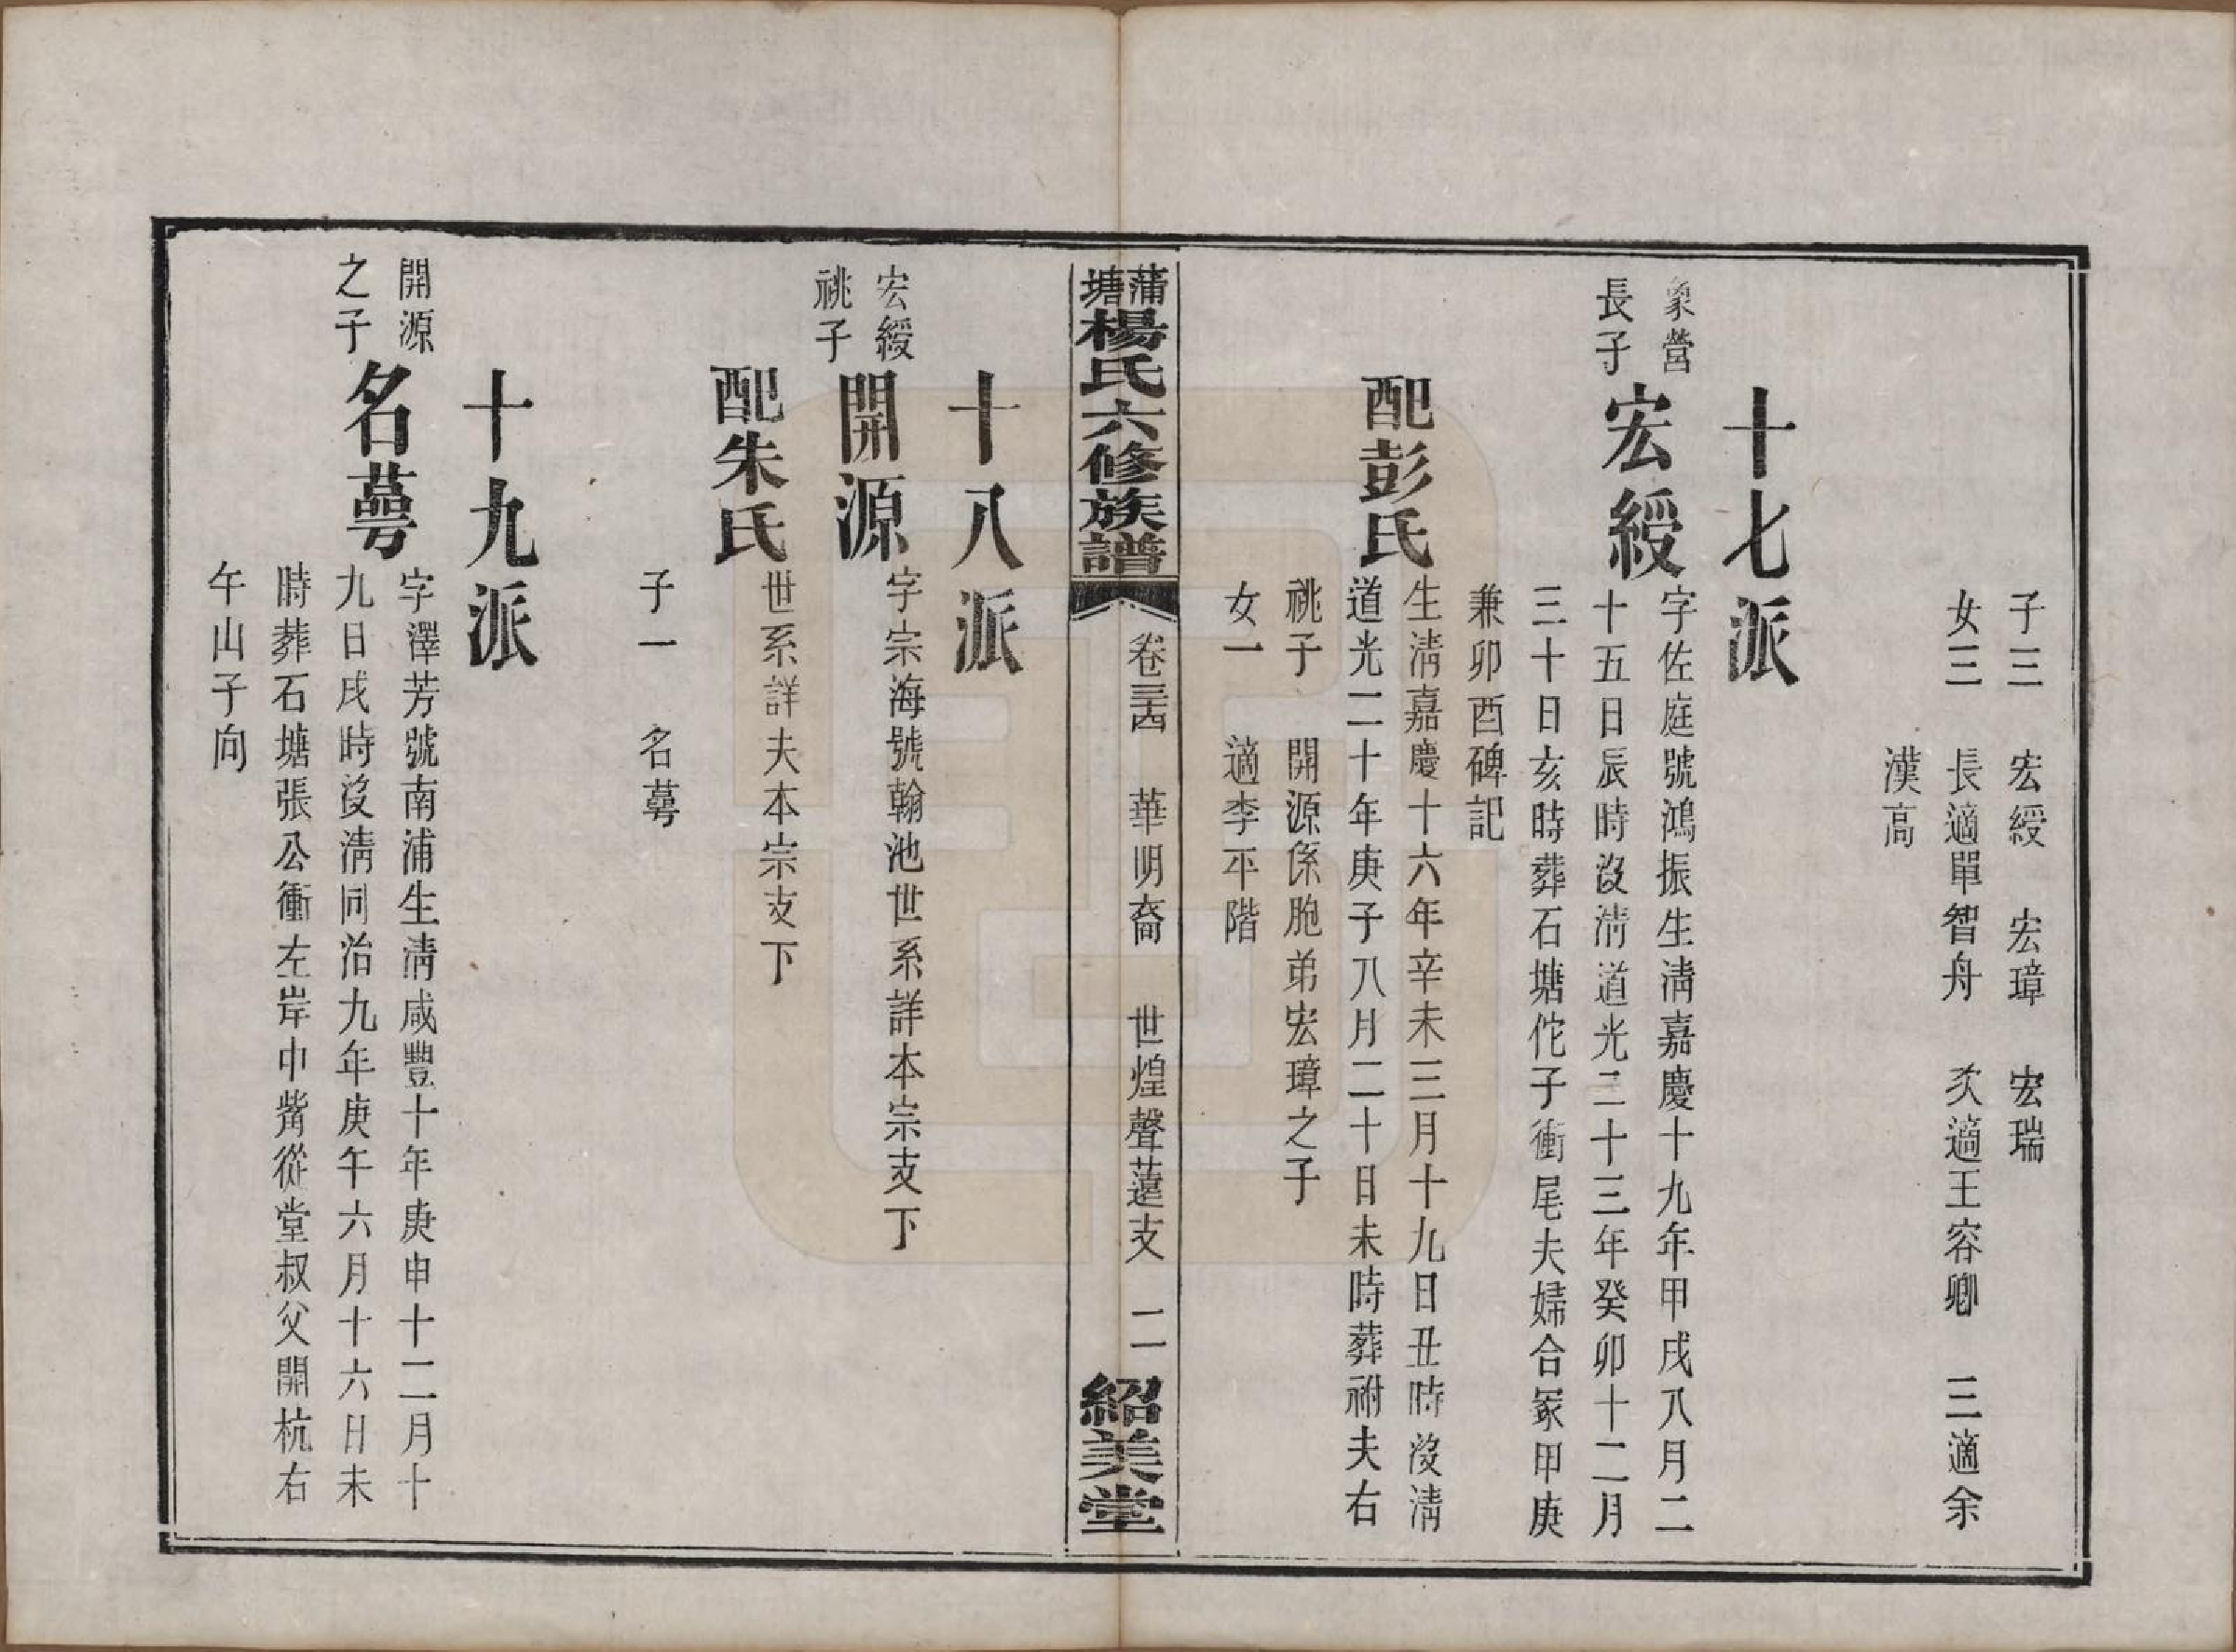 子三　宏綬　宏璋　宏瑞
女三　長適單智舟　次適王容卿　三適余
漢高
十七派
象營
長子
宏綬
字佐庭號鴻振生淸嘉慶十九年甲戌八月二
十五日辰時沒淸道光二十三年癸卯十二月
三十日亥時葬石塘佗子衝尾夫婦合冢甲庚
兼卯酉碑記
配彭氏
生淸嘉慶十六年辛未三月十九日丑時沒淸
道光二十年庚子八月二十日未時葬祔夫右
祧子　開源係胞弟宏璋之子
女一　適李平階
蒲塘楊氏六修族譜
卷三十四　華明裔　世煌聲蓮支　二
紹美堂
十八派
宏綬
祧子
開源
字宗海號翰池世系詳本宗支下
配朱氏
世系詳夫本宗支下
子一　名蕚
十九派
開源
之子
名蕚
字澤芳號南浦生淸咸豐十年庚申十二月十
九日戌時沒淸同治九年庚午六月十六日未
時葬石塘張公衝左岸中嘴從堂叔父開杭右
午山子向